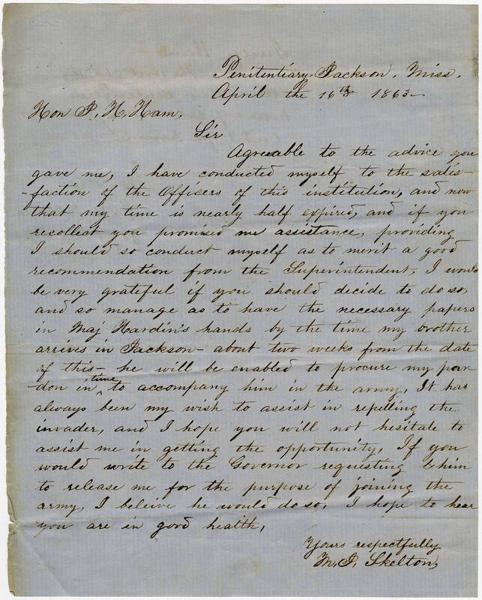 Penitentiary Jackson, Miss.
April the 16th 1863
Hon P. H. Ham.
Sir
Agreeable to the advice you
gave me, I have conducted myself to the satis-
-faction of the Officers of this institution, and now
that my time is nearly half expired, and if you
recollect you promised me assistance, providing
I should so conduct myself as to merit a good
recommendation from the Superintendent, I would
be very grateful if you should decide to do so
and so manage as to have the necessary papers
in Maj Hardin's hands by the time my brother
arrives in Jackson - about two weeks from the date
of this - he will be enabled to procure my par-
don in time to accompany him in the army, It has
always been my wish to assist in repelling the
invader, and I hope you will not hesitate to
assist me in getting the opportunity, If you
would write to the Governor requesting him
to release me for the purpose of joining the
army, I beleive he would do so, I hope to hear
you are in good health,
Yours respectfully
Skelton